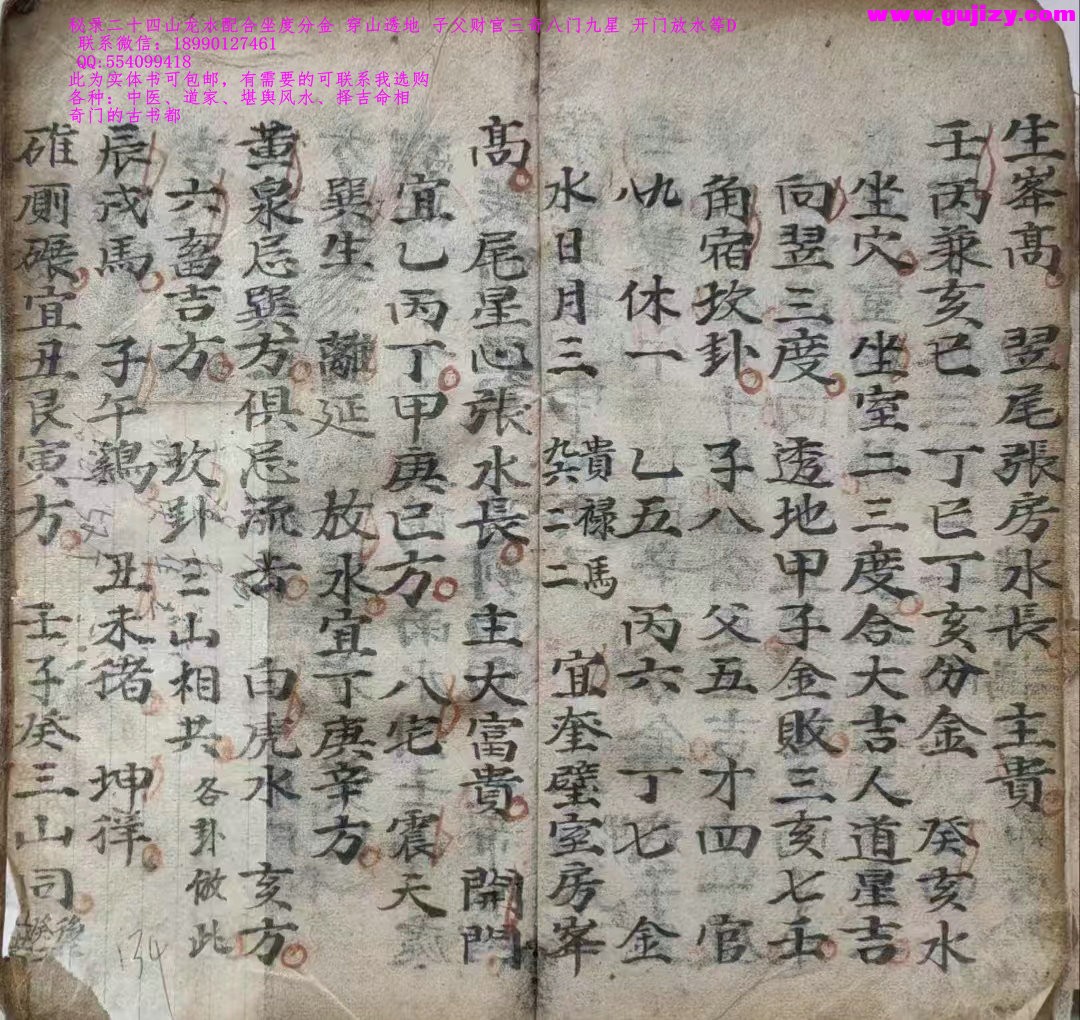 www.gujizy.com
秘录二十四山龙水配合坐度分金 穿山透地 子父财官三奇八门九星 开门放水等D
联系微信：18990127461
QQ:554099418
此为实体书可包邮，有需要的可联系我选购
各种：中医、道家、堪舆风水、择吉命相
奇门的古书都
生峯髙 翌尾張房水長 主貴
壬丙兼亥巳三丁巳丁亥分金 癸亥水
坐穴 坐室二三度合大吉人道星吉
向翌三度 透地甲子金敗三亥七壬
角宿坎卦 子八 父五 才四一官
九 休一 乙五 丙六 丁七 金
水日月三 貴禄馬 二二 宜奎璧室房峯
髙 尾星心張水長 主大富貴 開門
宜乙丙丁甲庚巳方 八宅 震天
巽生 離延 放水宜丁庚辛方
黄泉忌巽方俱忌流去 白虎水 亥方
六畜吉方 坎卦三山相共 各卦倣此
辰戌馬 子午鷄 丑未猪 坤徉
碓厠碾宜丑艮寅方 壬子癸三山司
134